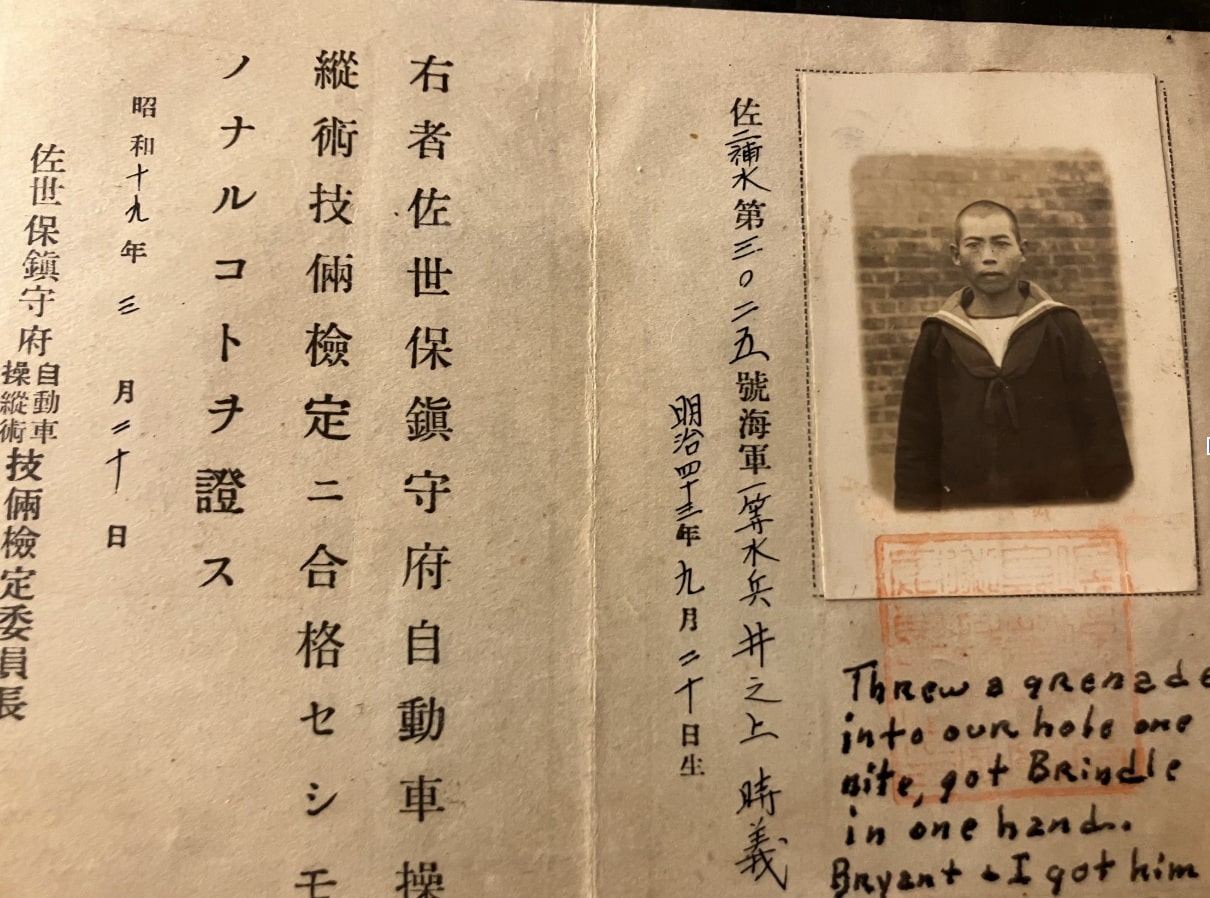 佐二補水第三〇二五號海軍一等水兵 井之上 時義
明治四十三年九月二十日生
右者佐世保鎭守府自動車操
縱術技倆檢定ニ合格セシモ
ノナルコトヲ證ス
昭和十九年三月二十日
佐世保鎭守府自動車操縱術技倆檢定委員長
Threw a grenade
into our hole one
nite, got Brindle
in one hand.
Bryant & I got him